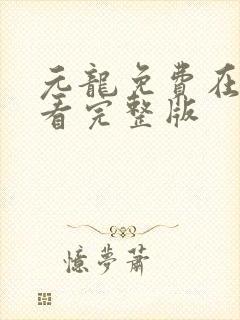 元龍免費在
看完整版
憶夢蕭